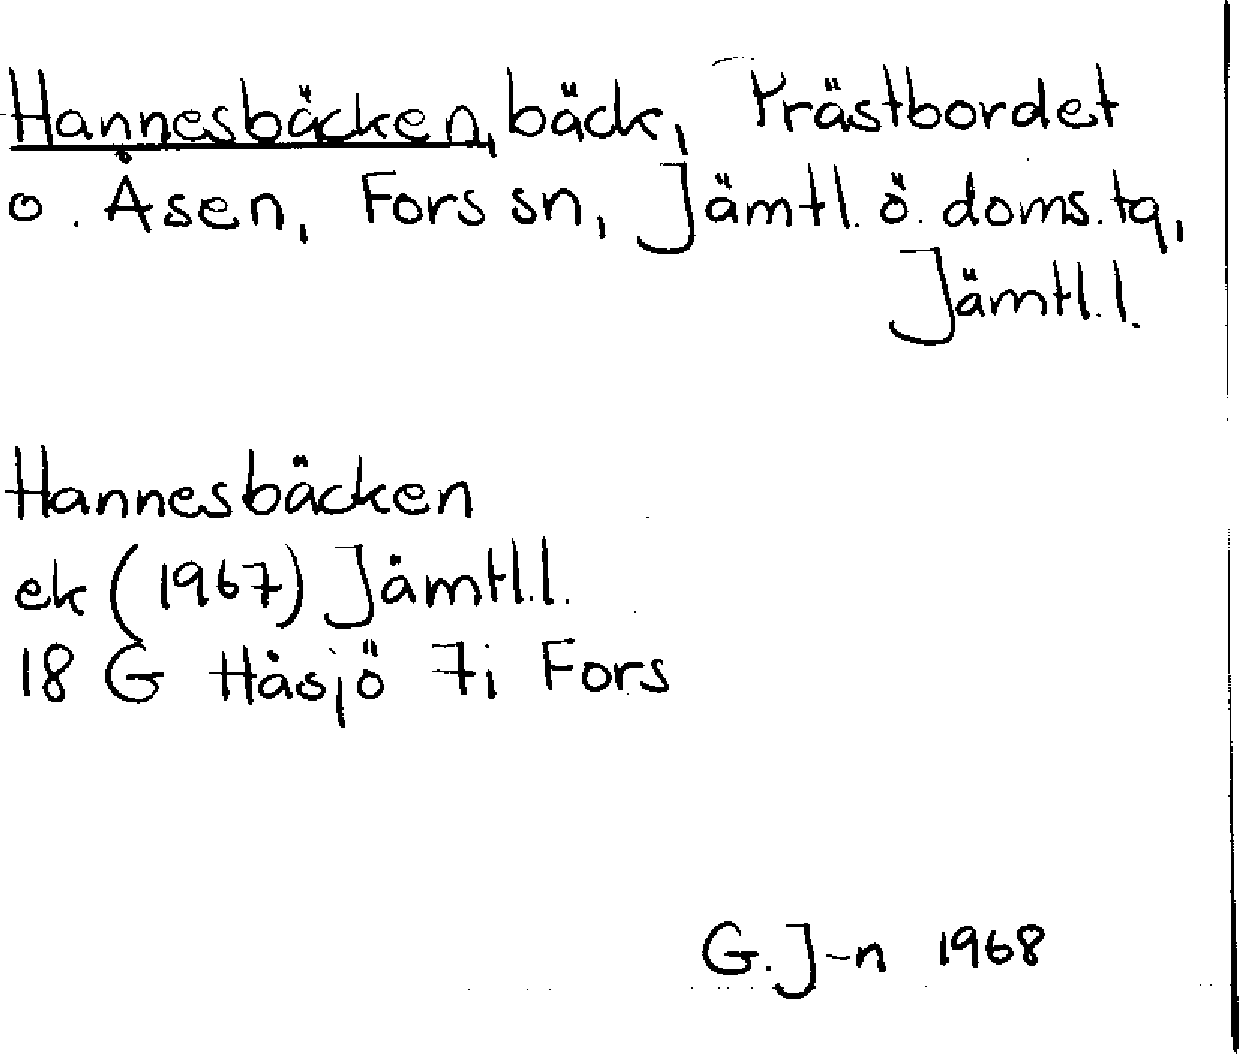 Hannesbäcken, bäck, Prästbordet
o. Åsen, Fors sn, Jämtl. ö. doms. tq,
Jämtl. l.
Hannesbäcken
ek (1967) Jämtl. l.
18 G Håsjö 7i Fors
G. J-n 1968